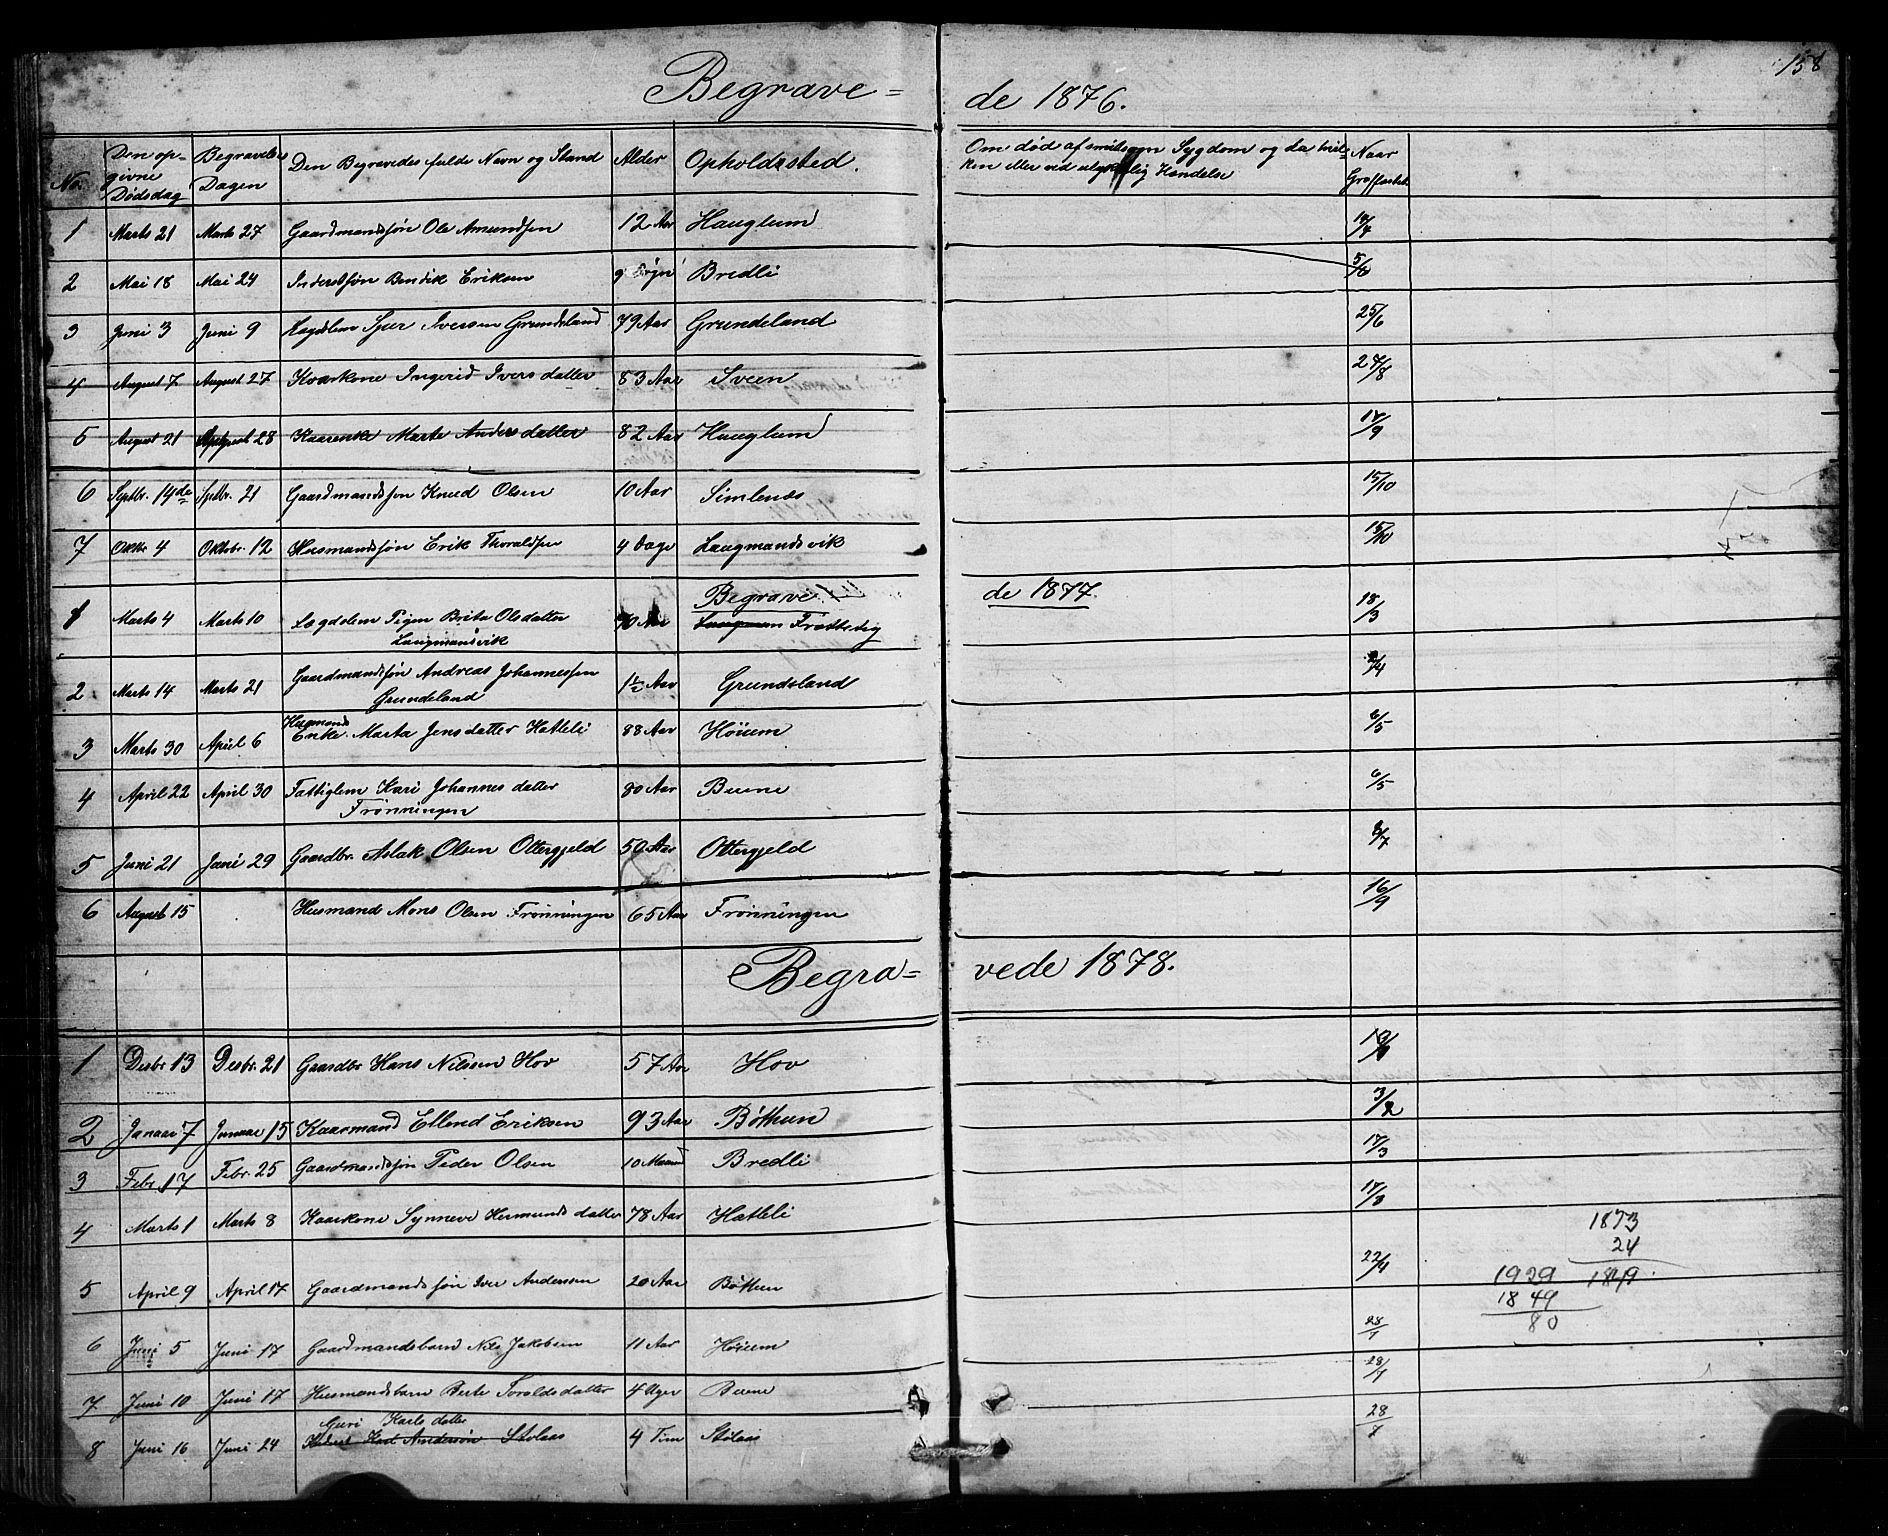 158
Begrave= de 1876.
No. Den op-givne Dødsdag Begravelses Dagen Den Begravedes fulde Navn og Stand Alder Opholdssted. Om død af smitsom Sygdom og da hvil-ken eller ved ulykkelig Hendelse Naar Graffæstet
1 Marts 21 Marts 27 Gaardmandssøn Ole Amundsen 12 Aar Hauglum
2 Mai 18 Mai 24 Inderstsøn Bendik Eriksen 9 Bredli
3 Juni 3 Juni 9 Lægdslem Sjur Iversen Grundeland 79 Aar Grundeland 25/6
4 August 7 August 27 Kaarkone Ingerid Ivers datter 83 Aar Sveen 27/8
5 August 21 August 28 Kaarenke Marte Anders datter 82 Aar Hauglum 17/9
6 Septbr. 14de Septbr. 21 Gaardmandssøn Knud Olsen 10 Aar Simlenæs 15/10
7 Oktbr 4 Oktobr. 12 Husmandssøn Erik Thoraldsen 4 Dage Laugmandsvik 15/10
Begrave de 1877.
1 Marts 4 Marts 10 Lægdslem Pigen Brita Olsdatter 70 Aar 18/3
Laugmansvik
2 Marts 14 Marts 21 Gaardmandssøn Andreas Johannessen 1½ Aar Grundeland 2/4
Grundeland
Husmands
3 Marts 30 April 6 Enke. Marta Jensdatter Hatleli 88 Aar Høium 6/5
4 April 22 April 30 Fattiglem Kari Johannes datter 80 Aar Buene 6/5
Frønningen
5 Juni 21 Juni 29 Gaardbr. Aslak Olsen Ottergjeld 50 Aar Ottergjeld 8/7
6 August 15 Husmand Mons Olsen Frønningen 65 Aar Frønningen 16/9
Begra= vede 1878.
1 Desbr 13 Desbr. 21 Gaardbr Hans Nilssen Hov 57 Aar Hov
2 Januar 7 Januar 15 Kaarmand Ellend Eriksen 93 Aar Bøthun 3/2
3 Febr. 17 Febr. 25 Gaardmandssøn Peder Olsen 10 Bredli 17/3
4 Marts 1 Marts 8 Kaarkone Synneve Hermunds datter 78 Aar Hatleli 17/3
1873
24
5 April 9 April 17 Gaardmandssøn Iver Andersen 20 Aar Bøthun 22/4
1929 1849.
1849
80
6 Juni 5 Juni 17 Gaardmandsbarn Nils Jakobsen 11 Aar Høium 28/7
7 Juni 10 Juni 17 Husmandsbarn Berte Toralds datter 4 Uger Buene 28/7
Guri Karls datter
8 Juni 16 Juni 24 Karl Andersøn Stølaas 4 Tim Stølaas 28/7